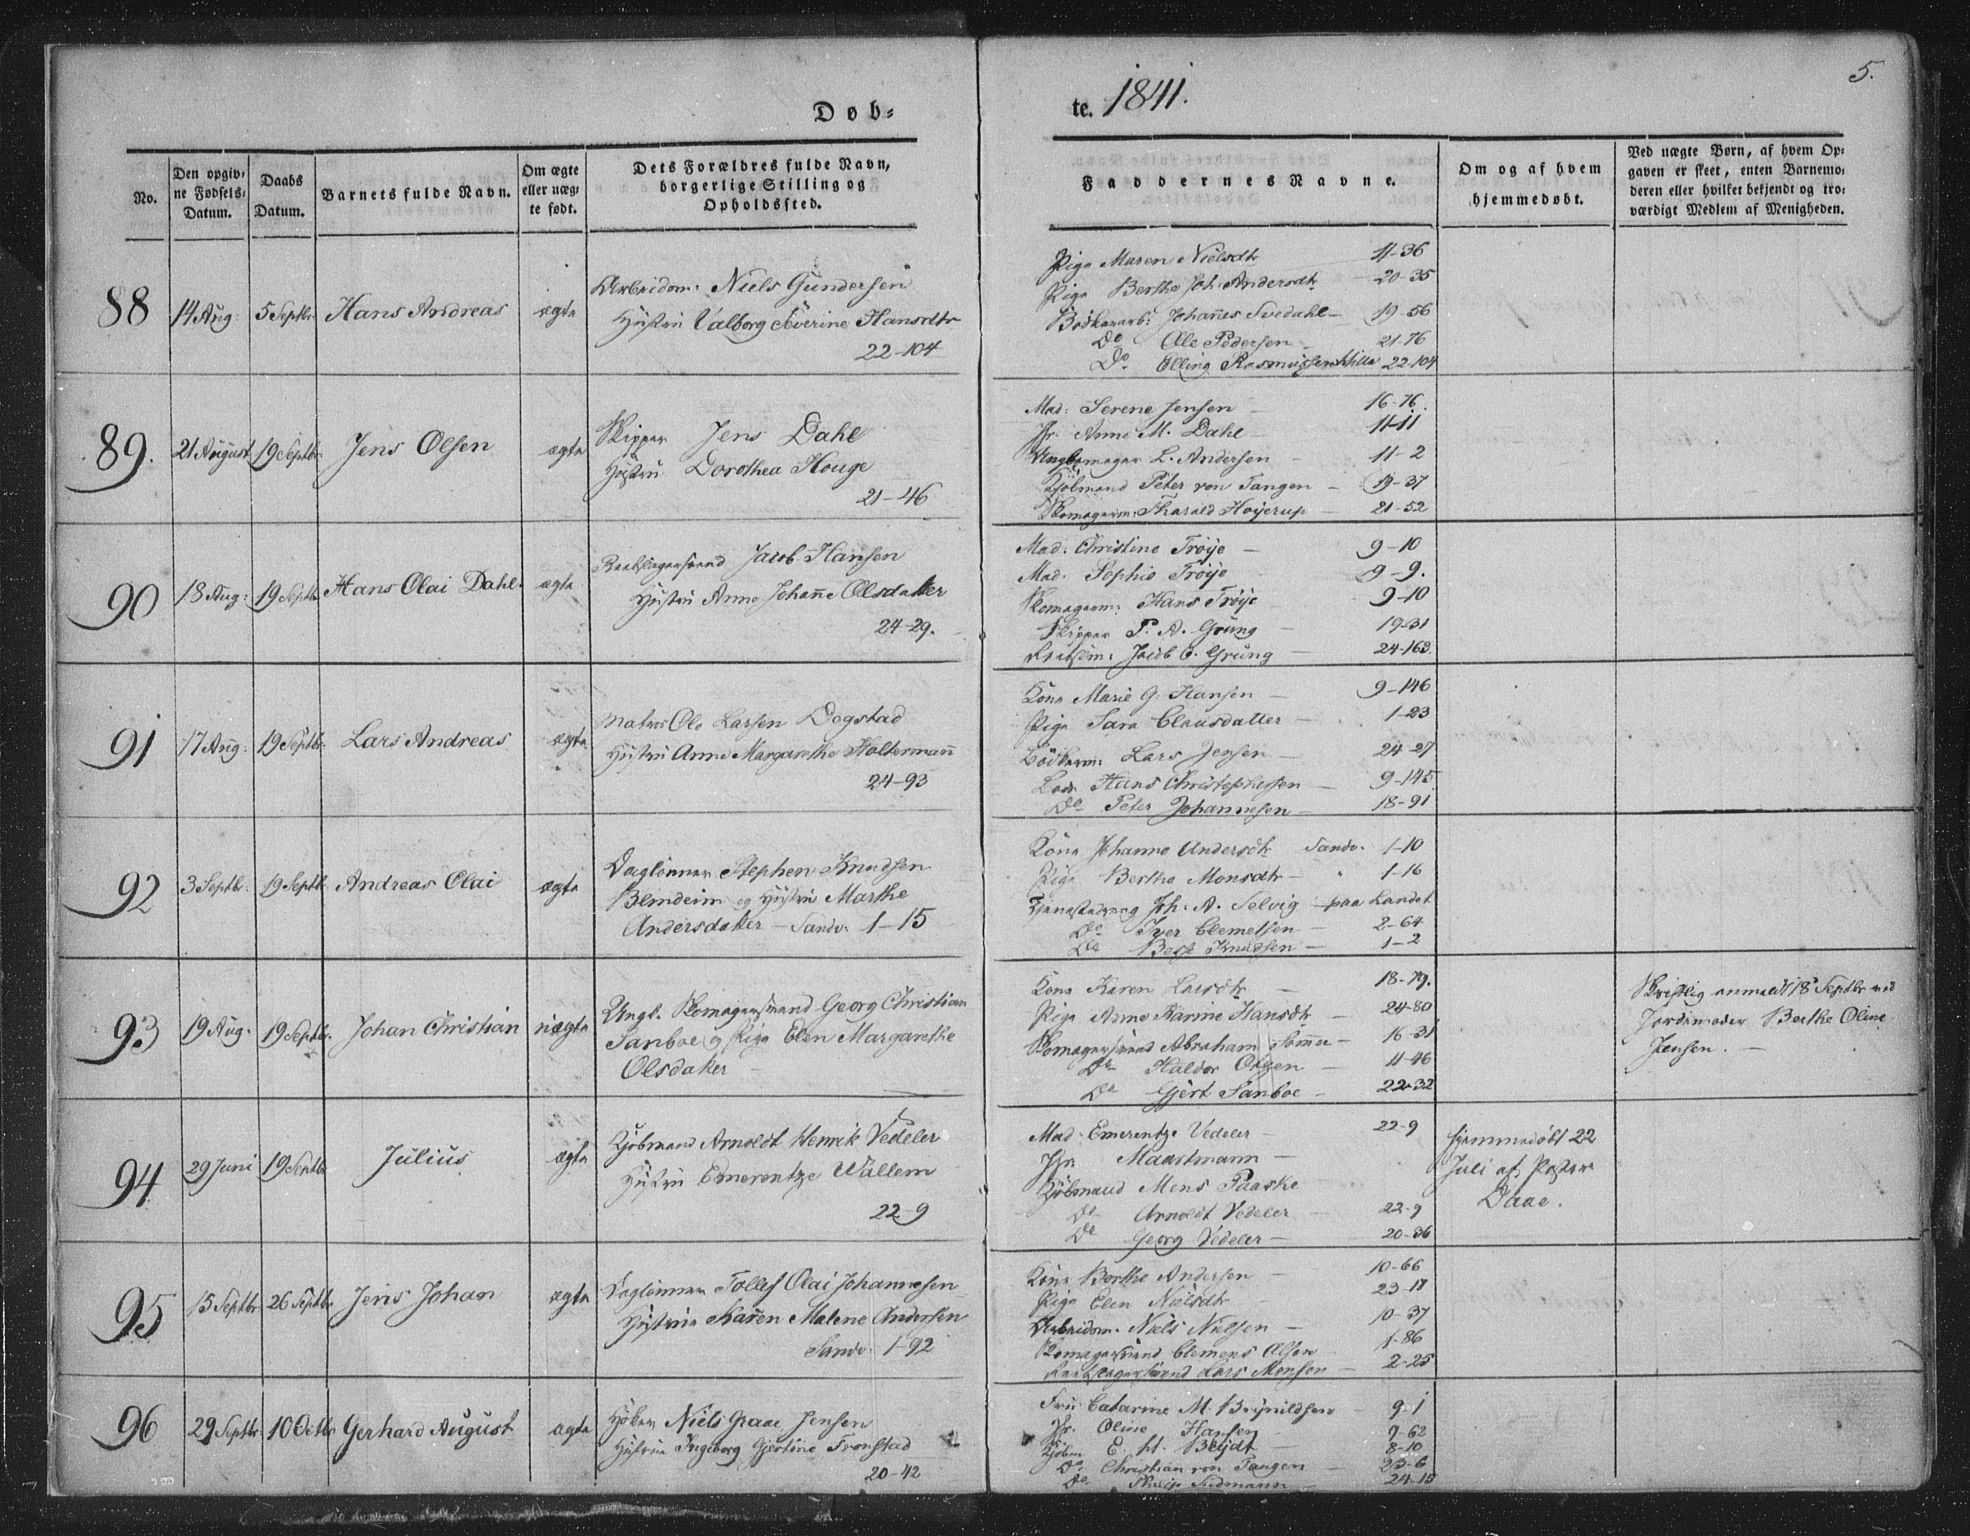 5.
Døb=
te. 1841.
No.
Den opgiv=
ne Fødsels=
Datum.
Daabs
Datum.
Barnets fulde Navn.
Om ægte
eller uæg=
te født.
Dets Forældres fulde Navn,
borgerlige Stilling og
Opholdssted.
Faddernes Navne.
Om og af hvem
hjemmedøbt.
Ved uægte Børn, af hvem Op=
gaven er skeet, enten Barnemo=
deren eller hvilket bekjendt og tro=
værdigt Medlem af Menigheden.
88
14 Aug:
5 Septbr.
Hans Andreas
ægte
Arbeidsm: Niels Gundersen
Hustru Valborg Severine Hansdtr
22-104
Pige Maren Nielsdtr 11-36
Pige Berthe Joh. Andersdtr 20-35
Bødkerarb: Johannes Svedahl 19-56
Do Ole Pedersen 21-76
Do Elling Rasmussen Milla 22-104
89.
21 August
19 Septbr.
Jens Olsen
ægte
Skipper Jens Dahl
Hustru Dorothea Houge
21-46
Mad: Serene Jensen 16-76.
Jfr. Anne M. Dahl 11-11
L. Andersen 11-2
Kjøbmand Peter von Tangen 19-37
Skomagerm: Tharald Hoyerup 21-52
90
18 Aug:
19 Septbr
Hans Olai Dahl.
ægte
Rebslagersvend Jacob Hansen
Hustru Anne Johanne Olsdatter
24-29.
Mad: Christine Trøye 9-10
Mad. Sophie Trøye 9-9.
Skomagerm: Hans Trøye 9-10
Skipper P. A. Grung 19-31
Jacob C. Grung 24-163.
91
17 Aug:
19 Septbr.
Lars Andreas
ægte
Matros Ole Larsen Dogstad
Hustru Anne Margarethe Holtermann
24-93
Kone Marie G. Hansen 9-146
Pige Sara Clausdatter 1-23
Bødkerm: Lars Jensen 24-27
Lods Hans Christophersen 9-145
Do Peter Johannesen 18-91
92
3 Septbr.
19 Septbr
Andreas Olai
ægte
Daglønner Stephen Knudsen
Blindeim og Hustru Marthe
Andersdatter - Sandv. 1-15
Kone Johanne Andersdtr Sandv. 1-10
Pige Berthe Monsdtr " 1-16
Tjenestedreng Joh. A. Selvig paa Landet
Do Iver Clemetsen 2-64
Do Besse Knudsen 1-2
93
19 Aug.
19 Septbr.
Johan Christian
uægte
Ungk. Skomagersvend Georg Christian
Sanboe og Pige Elen Margarethe
Olsdatter
Kone Karen Larsdtr 18-79.
Pige Anne Karine Hansdtr 24-80
Skomagersvend Abraham Sommer 16-31
Do Haldor Olsen 11-46
Do Gjert Sanboe 22-32
Skriftlig anmeldt 18 Septbr ved
Jordemoder Berthe Oline
Jensen.
94
29 Juni
19 Septbr
Julius
ægte
Kjøbmand Arnoldt Henrik Vedeler
Hustru Emerentze Wallem
22-9
Mad. Emerentze Vedeler 22-9
Jfr Maartmann
Kjøbmand Mens Paaske
Do Arnoldt Vedeler 22-9
Do Georg Vedeler 20-36
Hjemmedøbt 22
Juli af Pastor
Daae.
95
15 Septbr
26 Septbr
Jens Johan
ægte
Daglønner Tollef Olai Johannesen
Hustrue Karen Malene Andersen
Sandv. 1-92
Kone Berthe Andersen 10-66
Pige Elen Nielsdtr 23-17
Arbeidsm. Niels Nielsen 10-37
Skomagersvend Clemens Olsen 1-86
Rebslagersvend Lars Monsen 2-25
96
29 Septbr.
10 Octbr
Gerhard August
ægte
Høker Niels Graae Jensen
Hustrue Ingeborg Gjertine Fronstad
20-42
Fru Catarine M. Brynildsen 9-1
Jfr. Oline Hansen 9-62
Kjøbm E. H. Beydt 8-10
Do. Christian von Tangen 23-6
Do Philip Tiedmann 24-15